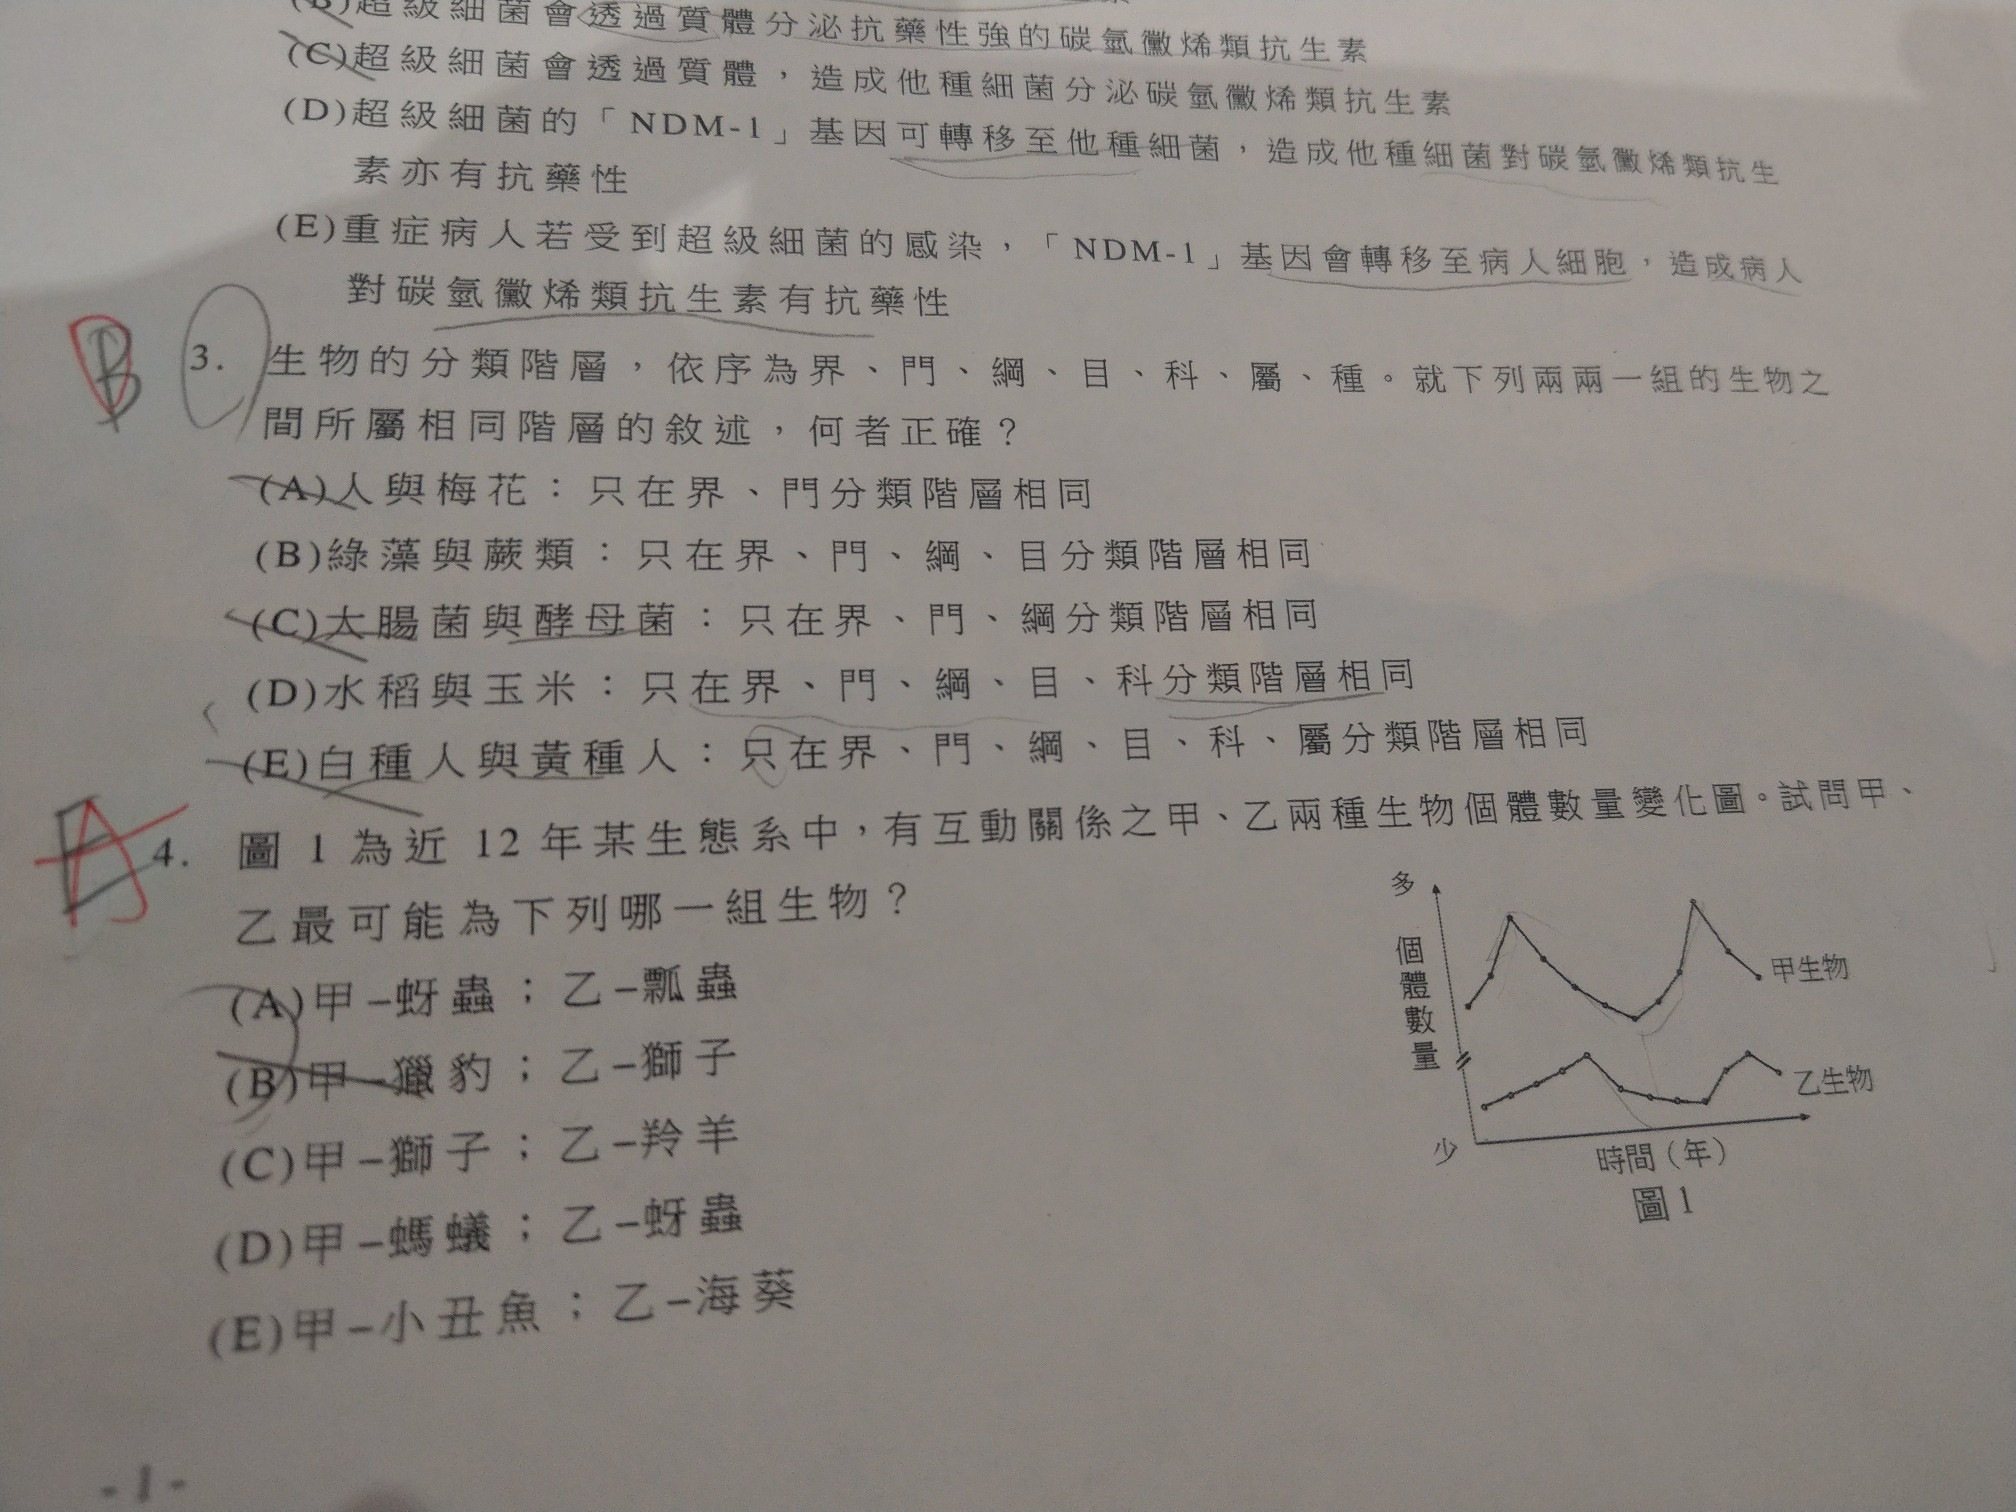 (B)超級細菌會透過質體分泌抗藥性強的碳氫黴烯類抗生素
(C)超級細菌會透過質體，造成他種細菌分泌碳氫黴烯類抗生素
(D)超級細菌的「NDM-1」基因可轉移至他種細菌，造成他種細菌對碳氫黴烯類抗生
素亦有抗藥性
(E)重症病人若受到超級細菌的感染，「NDM-1」基因會轉移至病人細胞，造成病人
對碳氫黴烯類抗生素有抗藥性
B 3. 生物的分類階層，依序為界、門、綱、目、科、屬、種。就下列兩兩一組的生物之
間所屬相同階層的敘述，何者正確？
(A)人與梅花：只在界、門分類階層相同
(B)綠藻與蕨類：只在界、門、綱、目分類階層相同
(C)大腸菌與酵母菌：只在界、門、綱分類階層相同
(D)水稻與玉米：只在界、門、綱、目、科分類階層相同
(E)白種人與黃種人：只在界、門、綱、目、科、屬分類階層相同
A 4. 圖 1 為近 12 年某生態系中，有互動關係之甲、乙兩種生物個體數量變化圖。試問甲、
乙最可能為下列哪一組生物？
(A)甲－蚜蟲；乙－瓢蟲
(B)甲－獵豹；乙－獅子
(C)甲－獅子；乙－羚羊
(D)甲－螞蟻；乙－蚜蟲
(E)甲－小丑魚；乙－海葵
多
個體數量
少
甲生物
乙生物
時間（年）
圖 1
- 1 -